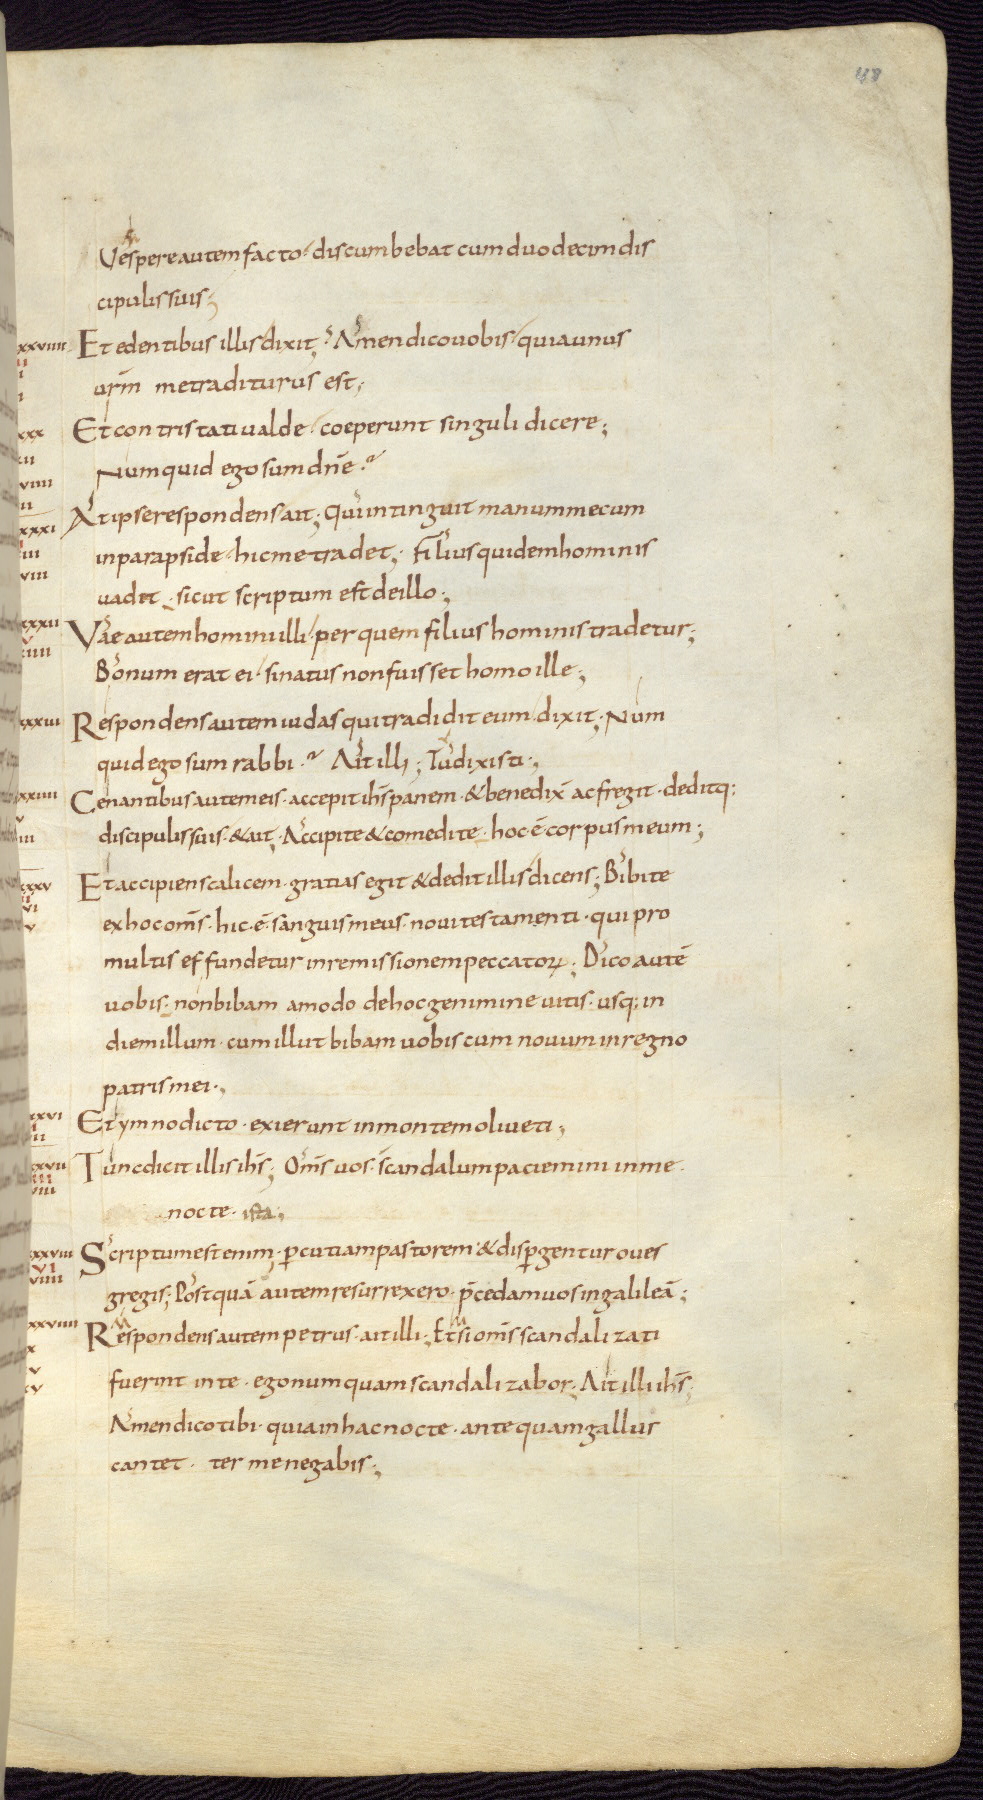 48
Vespere autem facto discumbebat cum duodecim dis
cipulis suis;
xxviiii Et edentibus illis dixit; Amen dico vobis quia unus
urm̄ me traditurus est;
xxx Et contristati valde coeperunt singuli dicere;
Numquid ego sum dn̄e?
xxxi At ipse respondens ait; Qui intinguit manum mecum
in parapside hic me tradet; Filius quidem hominis
vadet sicut scriptum est de illo;
xxxii Vae autem homini illi per quem filius hominis tradetur;
Bonum erat ei si natus non fuisset homo ille;
xxxiii Respondens autem iudas qui tradidit eum dixit; Num
quid ego sum rabbi? Ait illi; Tu dixisti;
xxiiii Cenantibus autem eis · accepit ih̄s panem · & benedix̄ ac fregit · deditq:
discipulis suis · & ait; Accipite & comedite · hoc · ē · corpus meum;
xxxv Et accipiens calicem · gratias egit & dedit illis dicens; Bibite
ex hoc om̄s · hic · ē · sanguis meus · novi testamenti · qui pro
multis effundetur in remissionem peccatoꝝ; Dico autē
vobis · non bibam amodo de hoc genimine vitis · usq; in
diem illum · cum illut bibam vobiscum novum in regno
patris mei;
xxvi Et ymno dicto · exierunt in montem oliveti;
xxvii Tunc dicit illis ih̄s; Om̄s vos · scandalum paciemini in me ·
nocte · ista;
xxviii Scriptum est enim; ꝑcutiam pastorem & dispꝑgentur oves
gregis; Postquā autem resurrexero · p̄cedam vos in galileā;
xxviiii Respondens autem petrus · ait illi; Et si om̄s scandalizati
fuerint in te · ego numquam scandalizabor; Ait illi ih̄s;
Amen dico tibi · quia in hac nocte · ante quam gallus
cantet · ter me negabis;